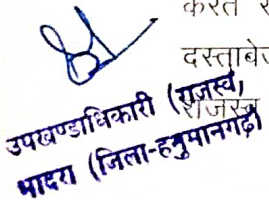 करत
दस्ताबेज
राजस्व
उपखण्डाधिकारी (राजस्व)
भादरा (जिला-हनुमानगढ़)